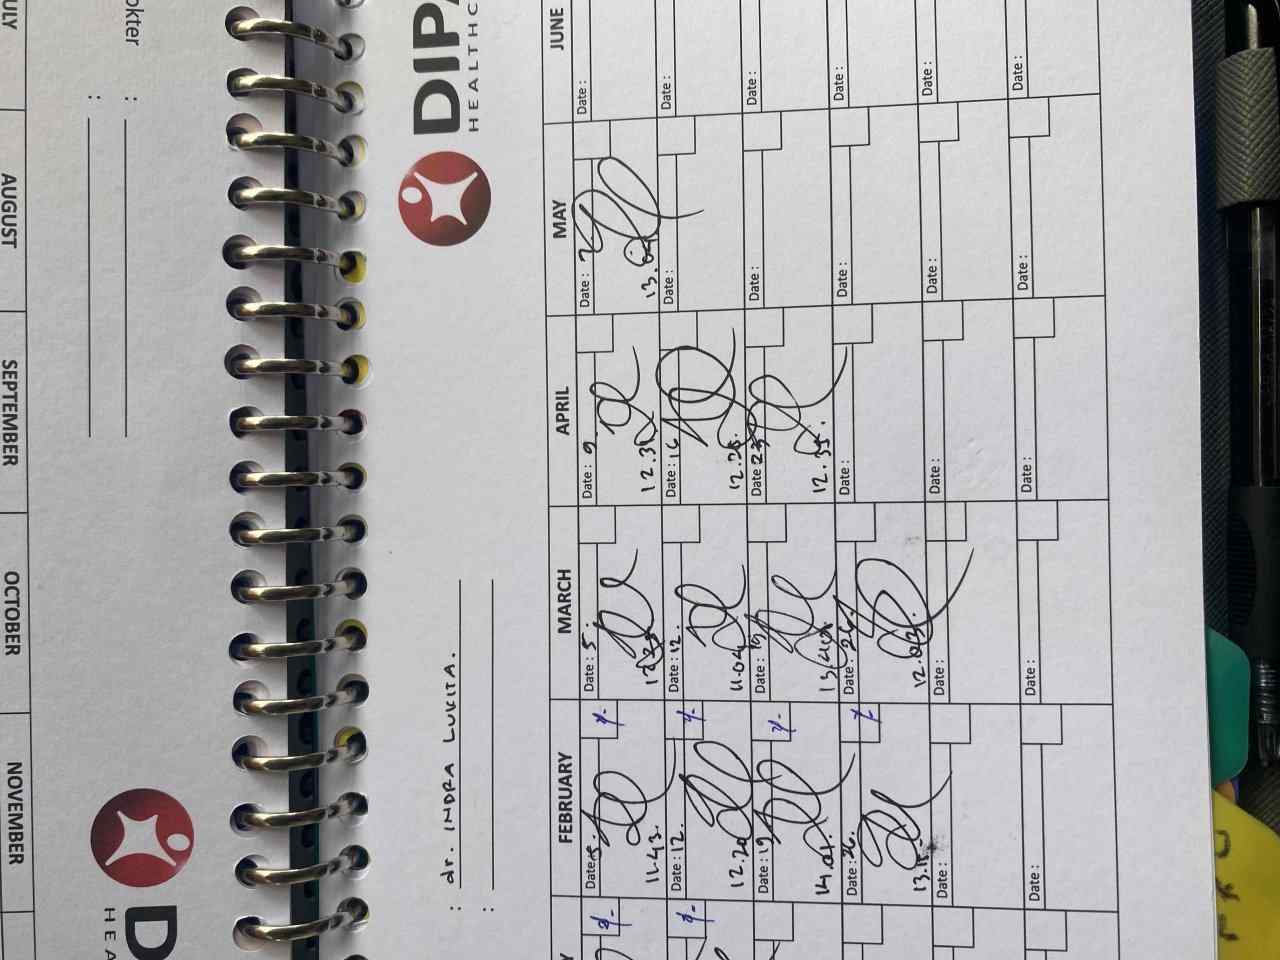 DIPA
HEALTHC
: dr. INDRA LUKITA.
:
FEBRUARY
MARCH
APRIL
MAY
JUNE
Date: 5.
11.43.
Date: 12.
12.20
Date: 19
14.01.
Date: 26.
13.15
Date:
Date:
Date: 5.
Date: 12.
11.04
Date: 19
Date: 26.
12.03.
Date:
Date:
Date: 9
12.31
Date: 16
12.26.
Date: 23
12.35.
Date:
Date:
Date:
Date:
13.
Date:
Date:
Date:
Date:
Date:
Date:
Date:
Date:
Date:
Date:
Date:
okter
:
:
NOVEMBER
OCTOBER
SEPTEMBER
AUGUST
ULY
D
HEA